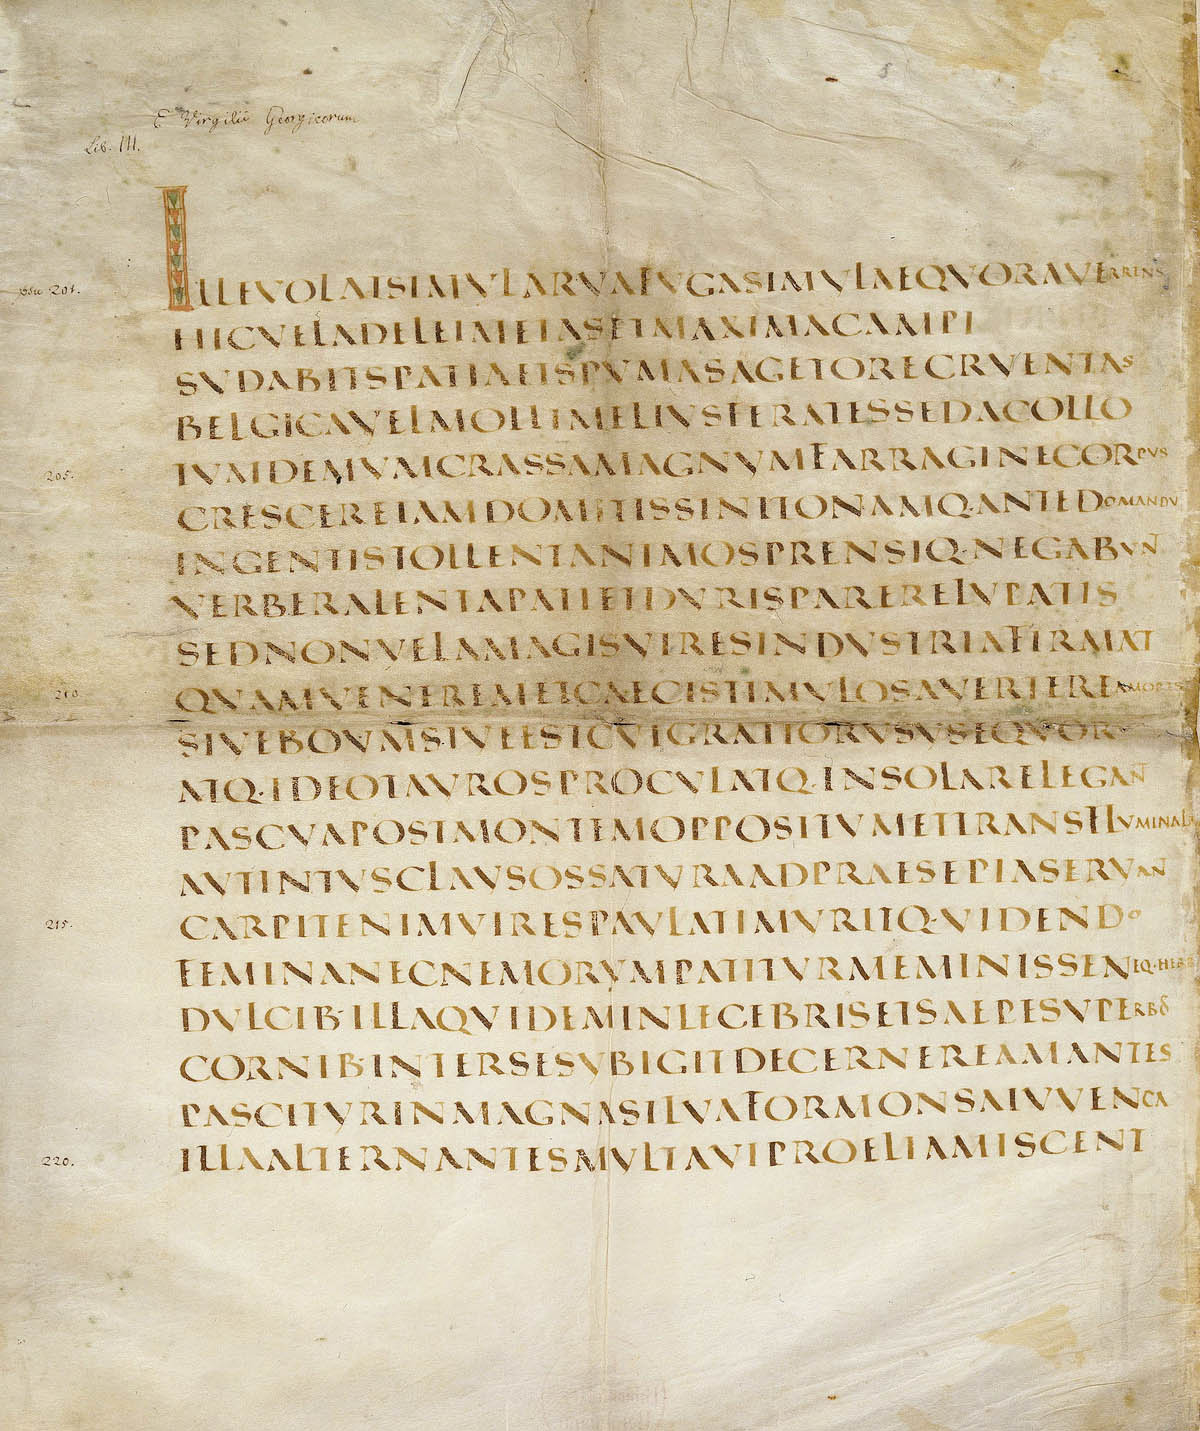 E Virgilii Georgicorum
Lib. III.
vsu 201.
ILLEVOLATSIMVLARVAFVGASIMVLAEQVORAVERRENS
HICVELADELEIMETASETMAXIMACAMPI
SVDABITSPATIAETSPVMASAGETORECRVENTAS
BELGICAVELMOLLIMELIVSFERATESSEDACOLLO
205.
TVMDEMVMCRASSAMAGNVMFARRAGINECORPVS
CRESCEREIAMDOMITISSINITONAMQ·ANTEDOMANDV
INGENTISTOLLENTANIMOSPRENSIQ·NEGABVN
VERBERALENTAPATIETDVRISPARERELVPATIS
SEDNONVELAMAGISVIRESINDVSTRIAFIRMAT
210.
QVAMVENEREMETCAECISTIMVLOSAVERTEREAMORIS
SIVEBOVMSIVEESTCVIGRATIORVSVSEQVOR
ATQ·IDEOTAVROSPROCVLATQ·INSOLARELEGAN
PASCVAPOSTMONTEMOPPOSITVMETTRANSFLVMINALA
AVTINTVSCLAVSOSSATVRAADPRAESEPIASERVAN
215.
CARPITENIMVIRESPAVLATIMVRITQ·VIDENDO
FEMINANECNEMORVMPATITVRMEMINISSENEQ·HERB
DVLCIB·ILLAQVIDEMINLECEBRISETSAEPESVPERBOS
CORNIB·INTERSESVBIGITDECERNEREAMANTES
PASCITVRINMAGNASILVAFORMONSAIVVENCA
220.
ILLAALTERNANTESMVLTAVIPROELIAMISCENT